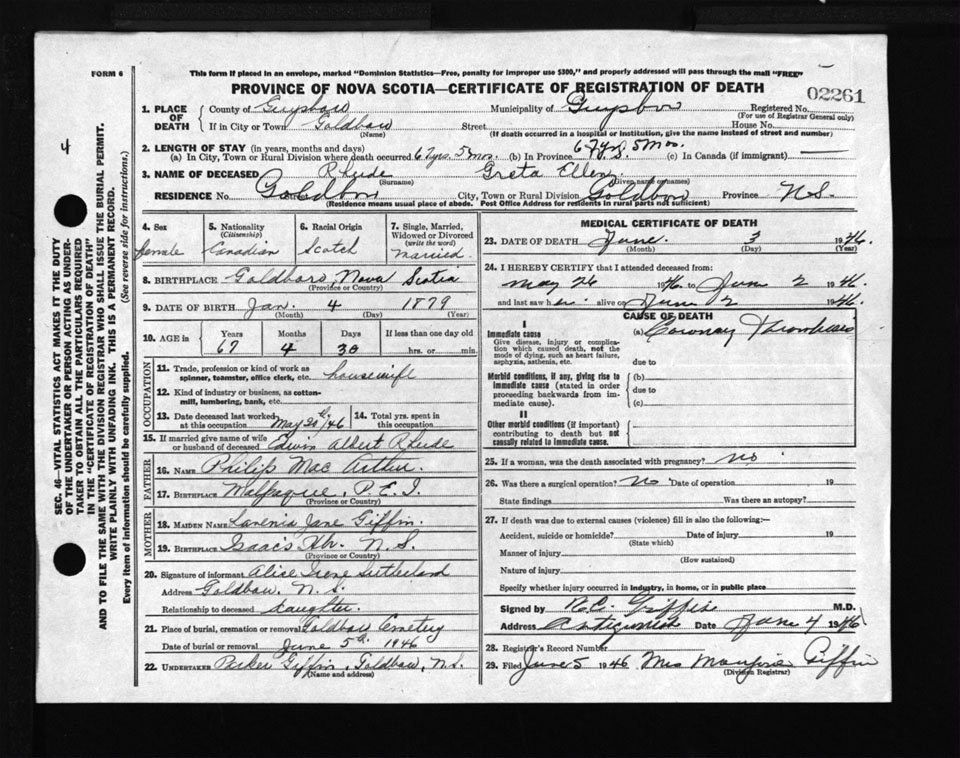 FORM 6
This form if placed in an envelope, marked "Dominion Statistics—Free, penalty for improper use $300," and properly addressed will pass through the mail "FREE"
PROVINCE OF NOVA SCOTIA—CERTIFICATE OF REGISTRATION OF DEATH
02261
1. PLACE OF DEATH
County of Guysboro Municipality of Guysboro Registered No.
(For use of Registrar General only)
If in City or Town Goldboro Street House No.
(Name) (If death occurred in a hospital or institution, give the name instead of street and number)
2. LENGTH OF STAY (in years, months and days)
(a) In City, Town or Rural Division where death occurred 67 yrs. 5 mos. (b) In Province 67 yrs. 5 Mos. (c) In Canada (if immigrant)
3. NAME OF DECEASED Rhude Greta Ellen
(Surname) (Given name or names)
RESIDENCE No. Goldboro City, Town or Rural Division Goldboro Province N.S.
(Residence means usual place of abode. Post Office Address for residents in rural parts not sufficient)
4. Sex
female
5. Nationality
(Citizenship)
Canadian
6. Racial Origin
Scotch
7. Single, Married, Widowed or Divorced
(write the word)
Married
8. BIRTHPLACE Goldboro, Nova Scotia
(Province or Country)
9. DATE OF BIRTH Jan. 4 1879
(Month) (Day) (Year)
10. AGE in
Years Months Days If less than one day old
67 4 30 hrs. or min.
OCCUPATION
11. Trade, profession or kind of work as spinner, teamster, office clerk, etc. housewife
12. Kind of industry or business, as cotton-mill, lumbering, bank, etc.
13. Date deceased last worked at this occupation May 30th/46
14. Total yrs. spent in this occupation
15. If married give name of wife or husband of deceased Edwin Albert Rhude
FATHER
16. NAME Philip Mac Arthur.
17. BIRTHPLACE Malpaque, P.E.I.
(Province or Country)
MOTHER
18. MAIDEN NAME Lavenia Jane Giffin.
19. BIRTHPLACE Isaac's Hbr. N.S.
(Province or Country)
20. Signature of informant Alice Irene Sutherland
Address Goldboro, N.S.
Relationship to deceased daughter.
21. Place of burial, cremation or removal Goldboro Cemetery
Date of burial or removal June 5th 1946
22. UNDERTAKER Parker Giffin, Goldboro, N.S.
(Name and address)
MEDICAL CERTIFICATE OF DEATH
23. DATE OF DEATH June 3 1946.
(Month) (Day) (Year)
24. I HEREBY CERTIFY that I attended deceased from:
May 26 1946 to June 2 1946
and last saw her alive on June 2 1946.
CAUSE OF DEATH
I
Immediate cause
Give disease, injury or complication which caused death, not the mode of dying, such as heart failure, asphyxia, asthenia, etc.
(a) Coronary Thrombosis
due to
Morbid conditions, if any, giving rise to immediate cause (stated in order proceeding backwards from immediate cause).
(b)
due to
(c)
II
Other morbid conditions (if important) contributing to death but not causally related to immediate cause.
25. If a woman, was the death associated with pregnancy? no
26. Was there a surgical operation? No Date of operation 19
State findings Was there an autopsy?
27. If death was due to external causes (violence) fill in also the following:—
Accident, suicide or homicide? Date of injury 19
(State which)
Manner of injury
(How sustained)
Nature of injury
Specify whether injury occurred in industry, in home, or in public place
Signed by Giffin M.D.
Address Antigonish Date June 4 1946
28. Registrar's Record Number
29. Filed June 5 1946 Mrs Giffin
(Division Registrar)
4
SEC. 46—VITAL STATISTICS ACT MAKES IT THE DUTY
OF THE UNDERTAKER OR PERSON ACTING AS UNDER-
TAKER TO OBTAIN ALL THE PARTICULARS REQUIRED
IN THE "CERTIFICATE OF REGISTRATION OF DEATH"
AND TO FILE THE SAME WITH THE DIVISION REGISTRAR WHO SHALL ISSUE THE BURIAL PERMIT.
WRITE PLAINLY WITH UNFADING INK. THIS IS A PERMANENT RECORD.
Every item of information should be carefully supplied. (See reverse side for instructions.)